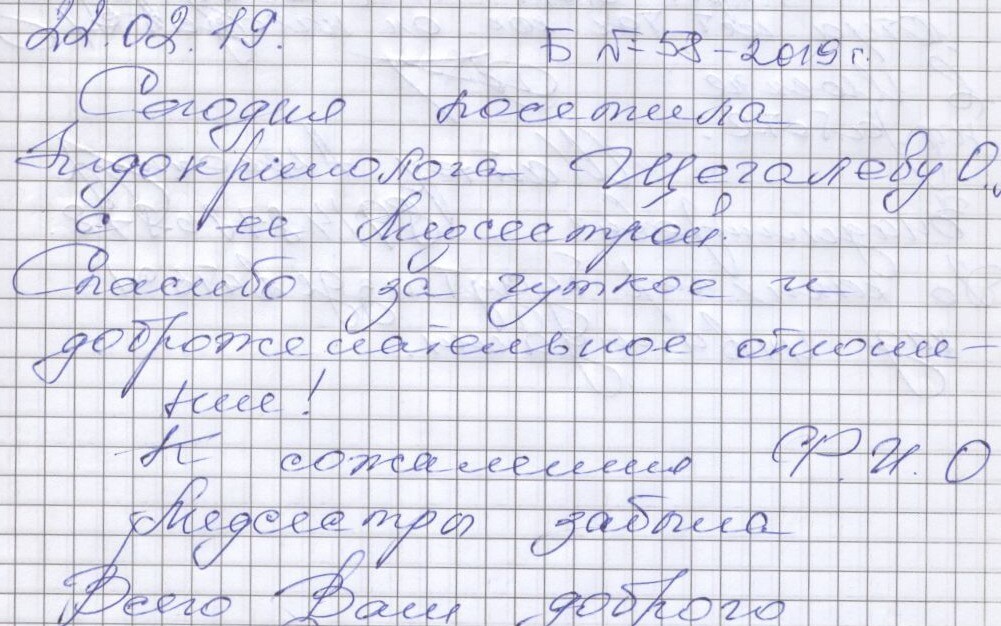 22.02.19. Б № 58-2019 г.
Сегодня посетила
Эндокринолога Щегалеву О.,
с ее Медсестрой.
Спасибо за чуткое и
доброжелательное отноше-
ние!
К сожалению Ф.И.О
Медсестры забыла
Всего Вам доброго